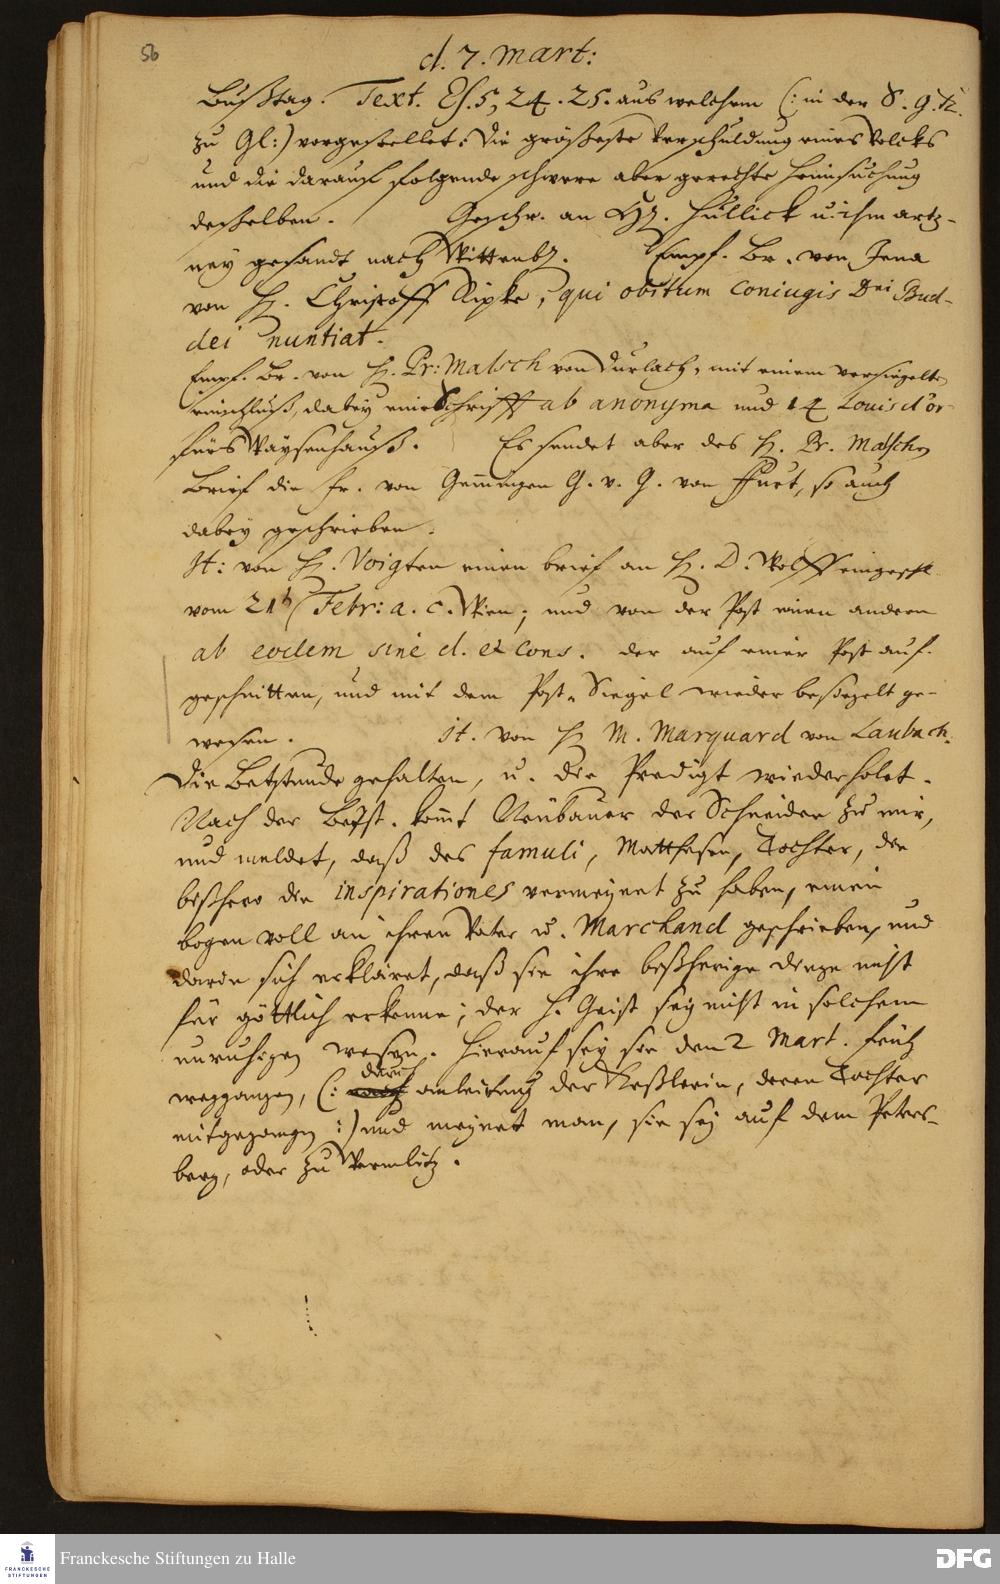 56
d. 7. Mart:
Bußtag. Text. Es. 5, 24. 25. aus welchem (: in der S. G. K.
zu Gl:) vorgestellet: die größeste Verschuldung eines Volcks
und die darauf folgende schwere aber gerechte Heimsuchung
desselben. Geschr. an H. Hüllick u. ihm artz-
ney gesandt nach Wittenb. Empf. Br. von Jena
von H. Christoff Ripke, qui obitum coniugis Dni Bud-
dei nuntiat.
Empf. Br. von H. Pr: Malsch von Durlach, mit einem versiegelten
einschluß, dabey eine Schrifft ab anonyma und 14 Louis d'or
fürs Waysenhauß. Es sendet aber des H. Pr. Malschen
Brief die fr. von Gemmingen G. v. G. von, so auch
dabey geschrieben.
It: von H. Voigten einen brief an H. D. Wolff eingeschl.
vom 21 Febr: a. c. Wien; und von der Post einen andern
ab eodem sine d. et cons. der auf einer Post auf-
geschnitten, und mit dem Post-Siegel wieder besiegelt ge-
wesen. It. von H M. Marquard von Laubach.
Die Betstunde gehalten, u. die Predigt wiederholet.
Nach der Betst. komt Neubauer der Schneider zu mir,
und meldet, daß des famuli, Matthesen, Tochter, die
bißhero die inspirationes vermeynet zu haben, einen
bogen voll an ihren Vater u. Marchand geschrieben, und
darin sich erkläret, daß sie ihre bißherige dinge nicht
für göttlich erkenne; der H. Geist sey nicht in solchem
unruhigen wesen. Hierauf sey sie den 2 Mart. früh
weggangen, (: durch anleitung der Keßlerin, deren Tochter
mitgegangen :) und meynet man, sie sey auf dem Peters-
berg, oder zu Wormlitz.
Franckesche Stiftungen zu Halle
FRANCKESCHE
STIFTUNGEN
DFG